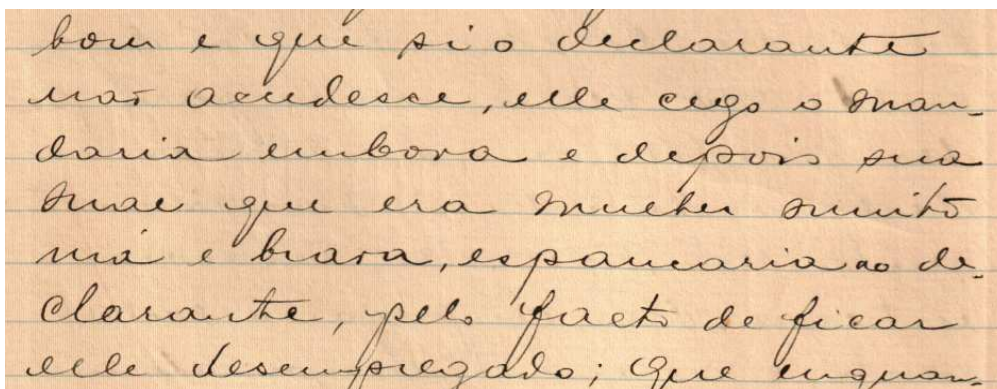 bom e que si o declarante
não acudesse, elle cego o man-
daria embora e depois sua
mae que era mulher muito
má e brava, espancaria ao de-
clarante, pelo facto de ficar
elle desempregado; que enquan-